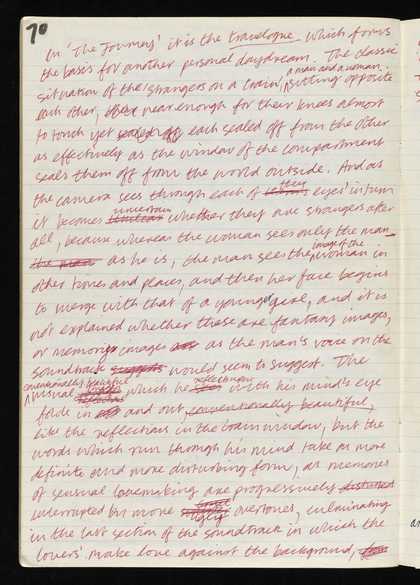 70
In 'The Journey' it is the travelogue which forms
the basis for another personal daydream. The classic
situation of the strangers on a train, a man and a woman, sitting opposite
each other, near enough for their knees almost
to touch yet sealed off each sealed off from the other
as effectively as the window of the compartment
seals them off from the world outside. And as
the camera sees through each of their eyes in turn
it becomes uncertain whether they are strangers after
all, because whereas the woman sees only the man
the man as he is, the man sees the image of the woman in
other times and places, and then her face begins
to merge with that of a younger girl, and it is
not explained whether these are fantasy images,
or memory images as the man's voice on the
soundtrack would seem to suggest. The
conventionally beautiful
visual reflections which he with his mind's eye
fade in and out conventionally beautiful,
like the reflections in the train window, but the
words which run through his mind take on more
definite and more disturbing form, as memories
of sensual lovemaking are progressively disturbed
interrupted by more overtones, culminating
in the last section of the soundtrack in which the
lovers' make love against the background,